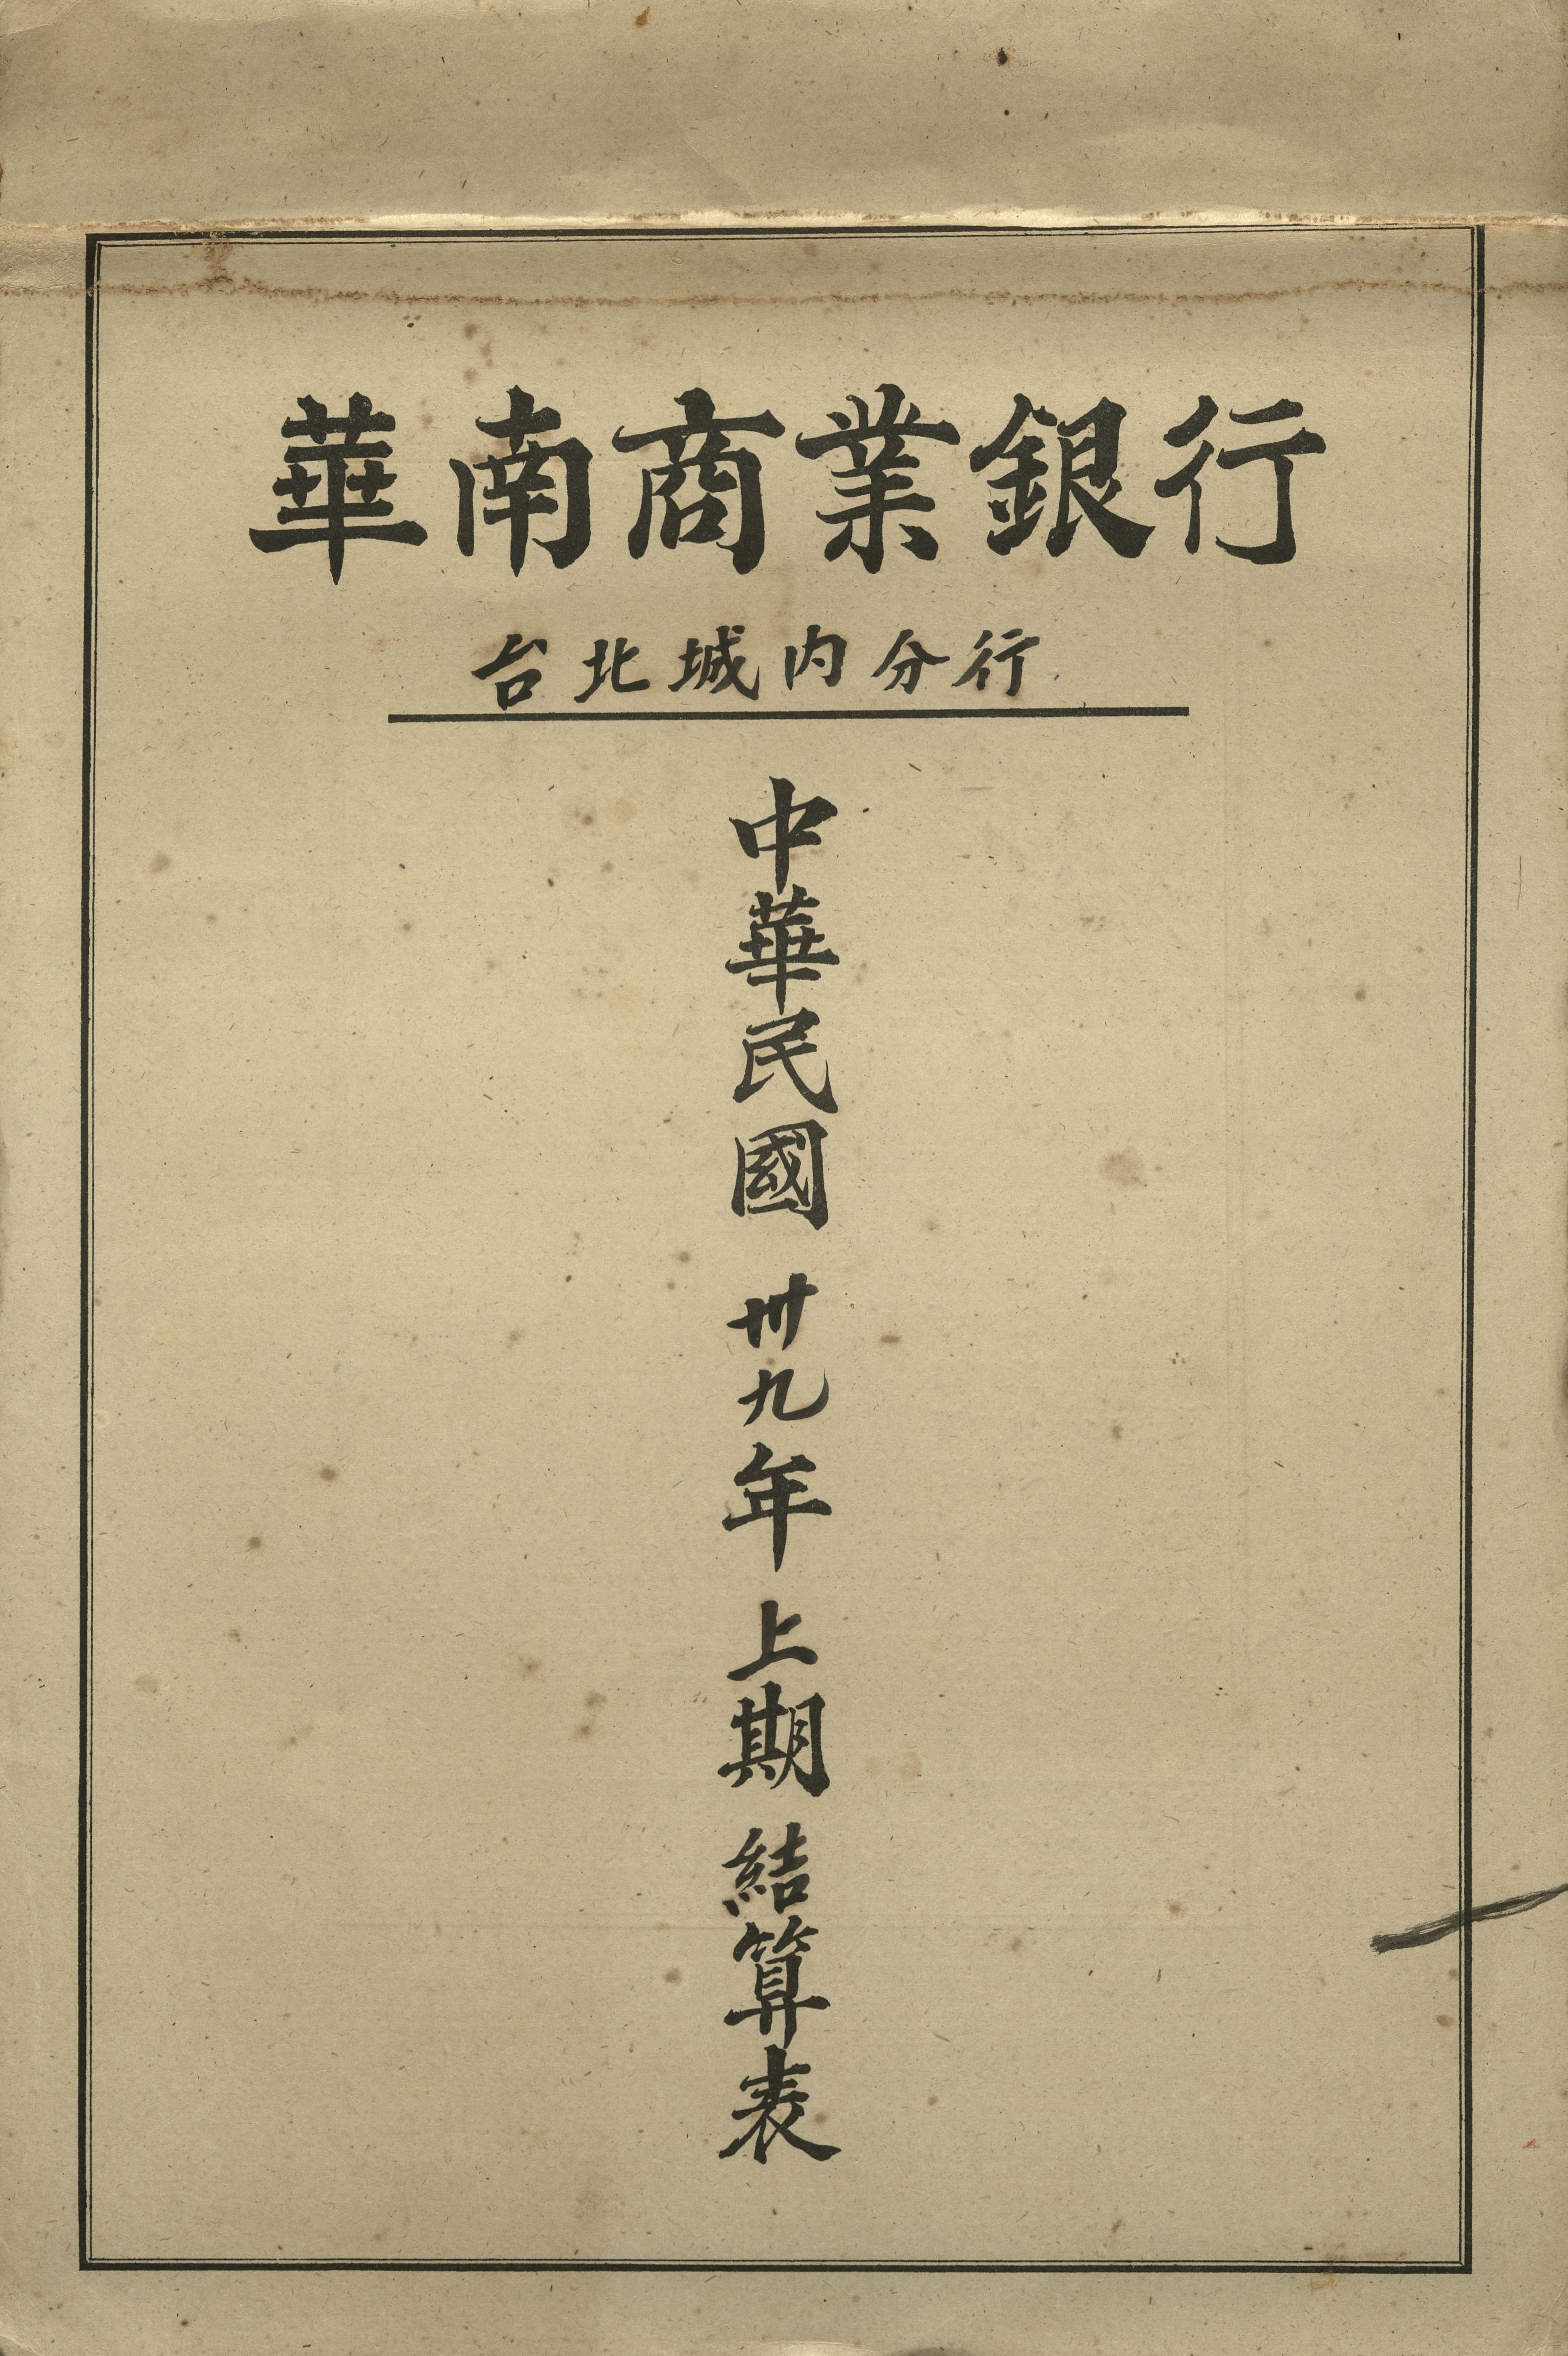 華南商業銀行
台北城内分行
中華民國卅九年上期結算表